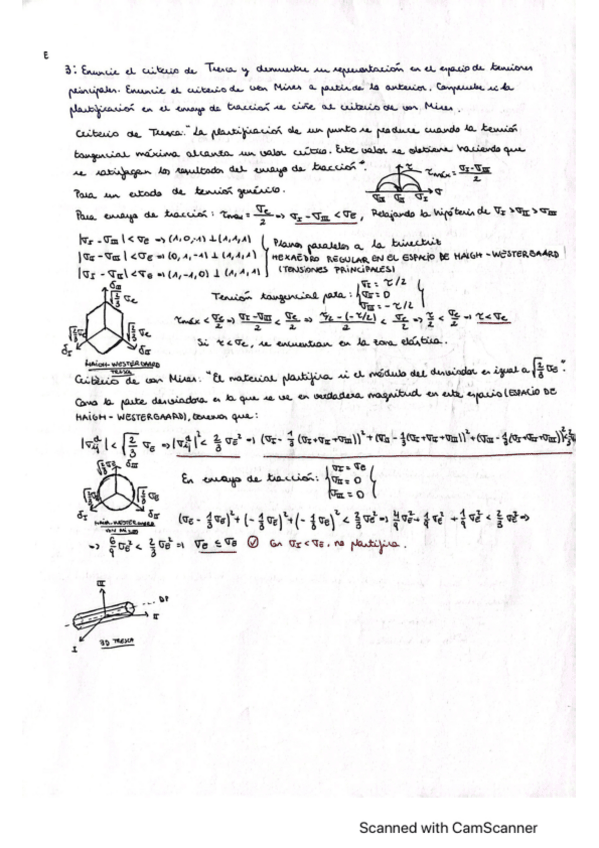 E
3: Enuncie el criterio de Tresca y demuestre su representación en el espacio de tensiones
principales. Enuncie el criterio de von Mises a partir de la anterior. Compruebe si la
plastificación en el ensayo de tracción se ciñe al criterio de von Mises.
Criterio de Tresca: "La plastificación de un punto se produce cuando la tensión
tangencial máxima alcanza un valor crítico. Este valor se obtiene haciendo que
se satisfagan los resultados del ensayo de tracción".
τ τmáx = (σI - σIII)/2
σIII σII σI σ
Para un estado de tensión genérico.
Para ensayo de tracción: τmáx = σe/2 => σI - σIII < σe, Relajando la hipótesis de σI > σII > σIII
|σI - σIII| < σe => (1,0,-1) ⊥ (1,1,1)
|σII - σIII| < σe => (0,1,-1) ⊥ (1,1,1)
|σI - σII| < σe => (1,-1,0) ⊥ (1,1,1)
Planos paralelos a la trisectriz
HEXAEDRO REGULAR EN EL ESPACIO DE HAIGH-WESTERGAARD
(TENSIONES PRINCIPALES)
Tensión tangencial pura: σI = τ/2
σII = 0
σIII = -τ/2
τmáx < σe/2 => (σI - σIII)/2 < σe/2 => (τ/2 - (-τ/2))/2 < σe/2 => τ/2 < σe/2 => τ < σe
Si τ < σe, se encuentran en la zona elástica.
σIII
√(2/3) σe
σI σII
HAIGH-WESTERGAARD
TRESCA
Criterio de von Mises: "El material plastifica si el módulo del desviador es igual a √(2/3) σe".
Como la parte desviadora es la que se ve en verdadera magnitud en este espacio (ESPACIO DE
HAIGH-WESTERGAARD), tenemos que:
|σᵈij| < √(2/3) σe => |σᵈij|² < 2/3 σe² => (σI - 1/3 (σI+σII+σIII))² + (σII - 1/3 (σI+σII+σIII))² + (σIII - 1/3 (σI+σII+σIII))² < 2/3
√(2/3) σe σIII
σI σII
HAIGH-WESTERGAARD
VON MISES
En ensayo de tracción: σI = σe
σII = 0
σIII = 0
(σe - 1/3 σe)² + (-1/3 σe)² + (-1/3 σe)² < 2/3 σe² => 4/9 σe² + 1/9 σe² + 1/9 σe² < 2/3 σe² =>
=> 6/9 σe² < 2/3 σe² => σe ≤ σe ✓ En σI < σe, no plastifica.
III
DP
II
I
3D TRESCA
Scanned with CamScanner